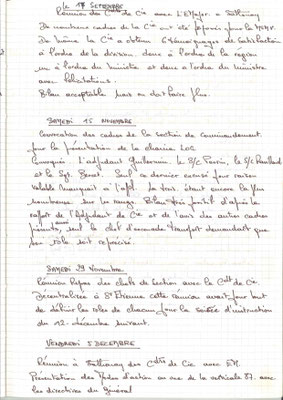 Le 17 SEPTEMBRE
Réunion des Cdt de Cie avec l'E.Major à Sathonay
De nombreux cadres de la Cie ont été proposés pour la
De même la Cie a obtenu 6 témoignages de satisfaction
à l'ordre de la division, deux à l'ordre de la région
un à l'ordre du ministre et deux à l'ordre du ministre
avec félicitations.
Bilan acceptable mais on doit faire plus.
SAMEDI 15 NOVEMBRE
Convocation des cadres de la section de commandement
pour la présentation de la chaîne LOG
Convoqués : L'adjudant Guillermin, le S/C Perrin, le S/C
et le Sgt. Seul ce dernier excusé pour raison
valable manquait à l'appel. La trois étant encore la plus
nombreuse sur les rangs. Bilan très positif d'après le
rapport de l'Adjudant de Cie et de l'avis des autres cadres
présents, seul le chef d'escouade transport demandait que
son rôle soit reprécisé.
SAMEDI 29 Novembre
Réunion Repas des chefs de section avec le Cdt de Cie
Décentralisée à St Etienne cette réunion avait pour but
de définir les rôles de chacun pour la soirée d'instruction
du 12 décembre suivant.
VENDREDI 5 DECEMBRE
Réunion à Sathonay des Cdts de Cie avec EM
Présentation des modes d'action au vue de la verticale 87. avec
les directives du Général